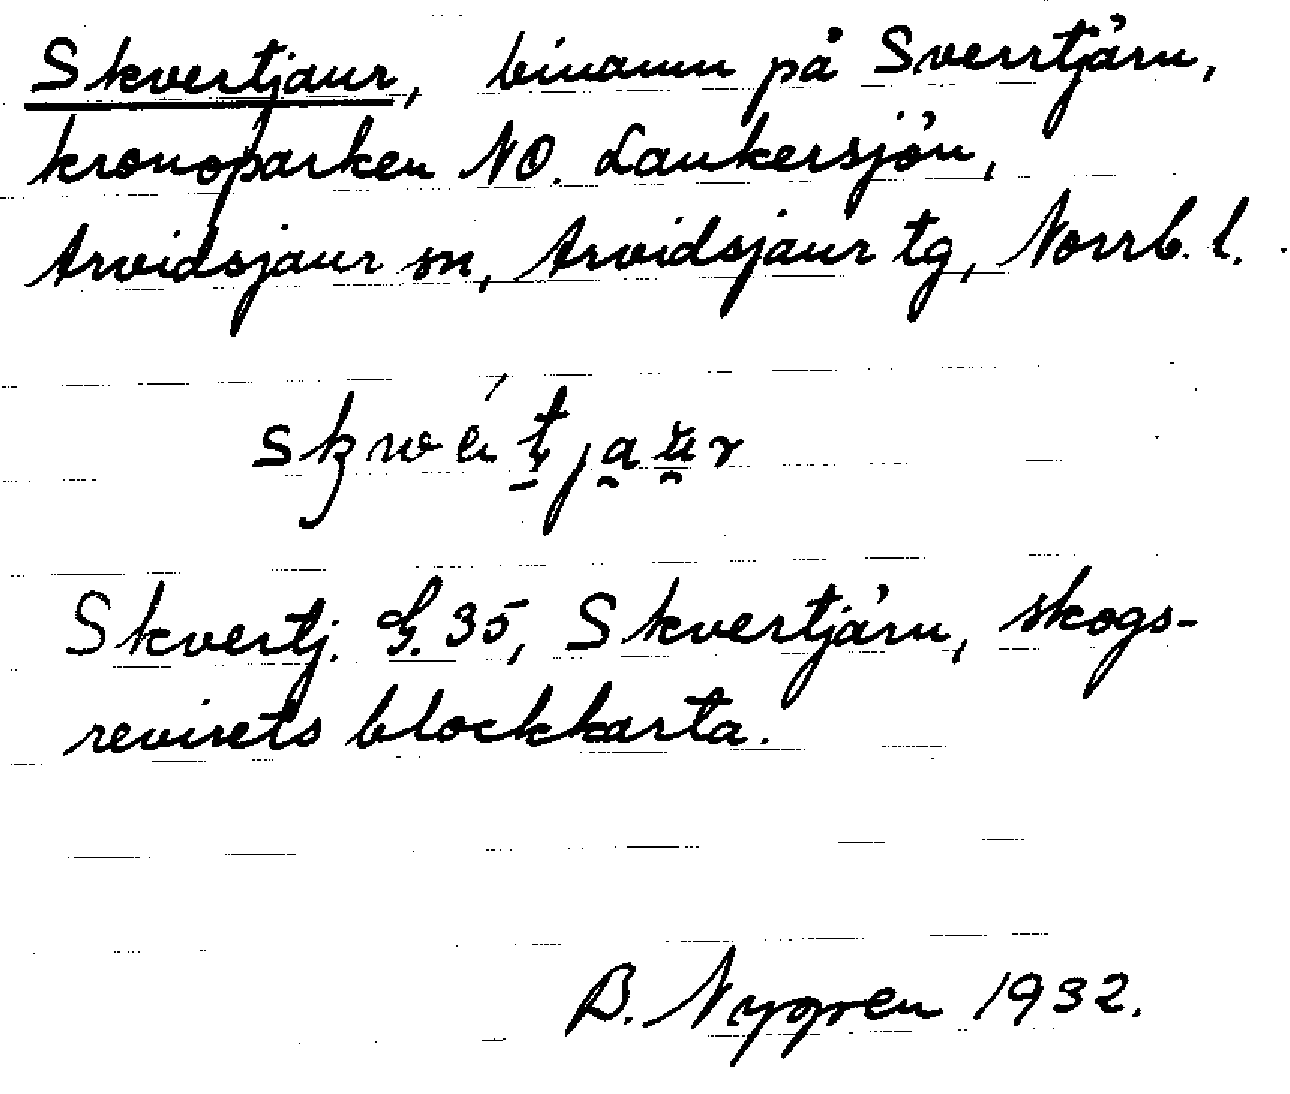 Skvertjaur, binamn på Sverrtjärn,
kronoparken NO. Laukersjön,
Arvidsjaur sn, Arvidsjaur tg, Norrb. l.
Skvertj. G. 35, Skvertjärn, skogs-
revirets blockkarta.
B. Nygren 1932.